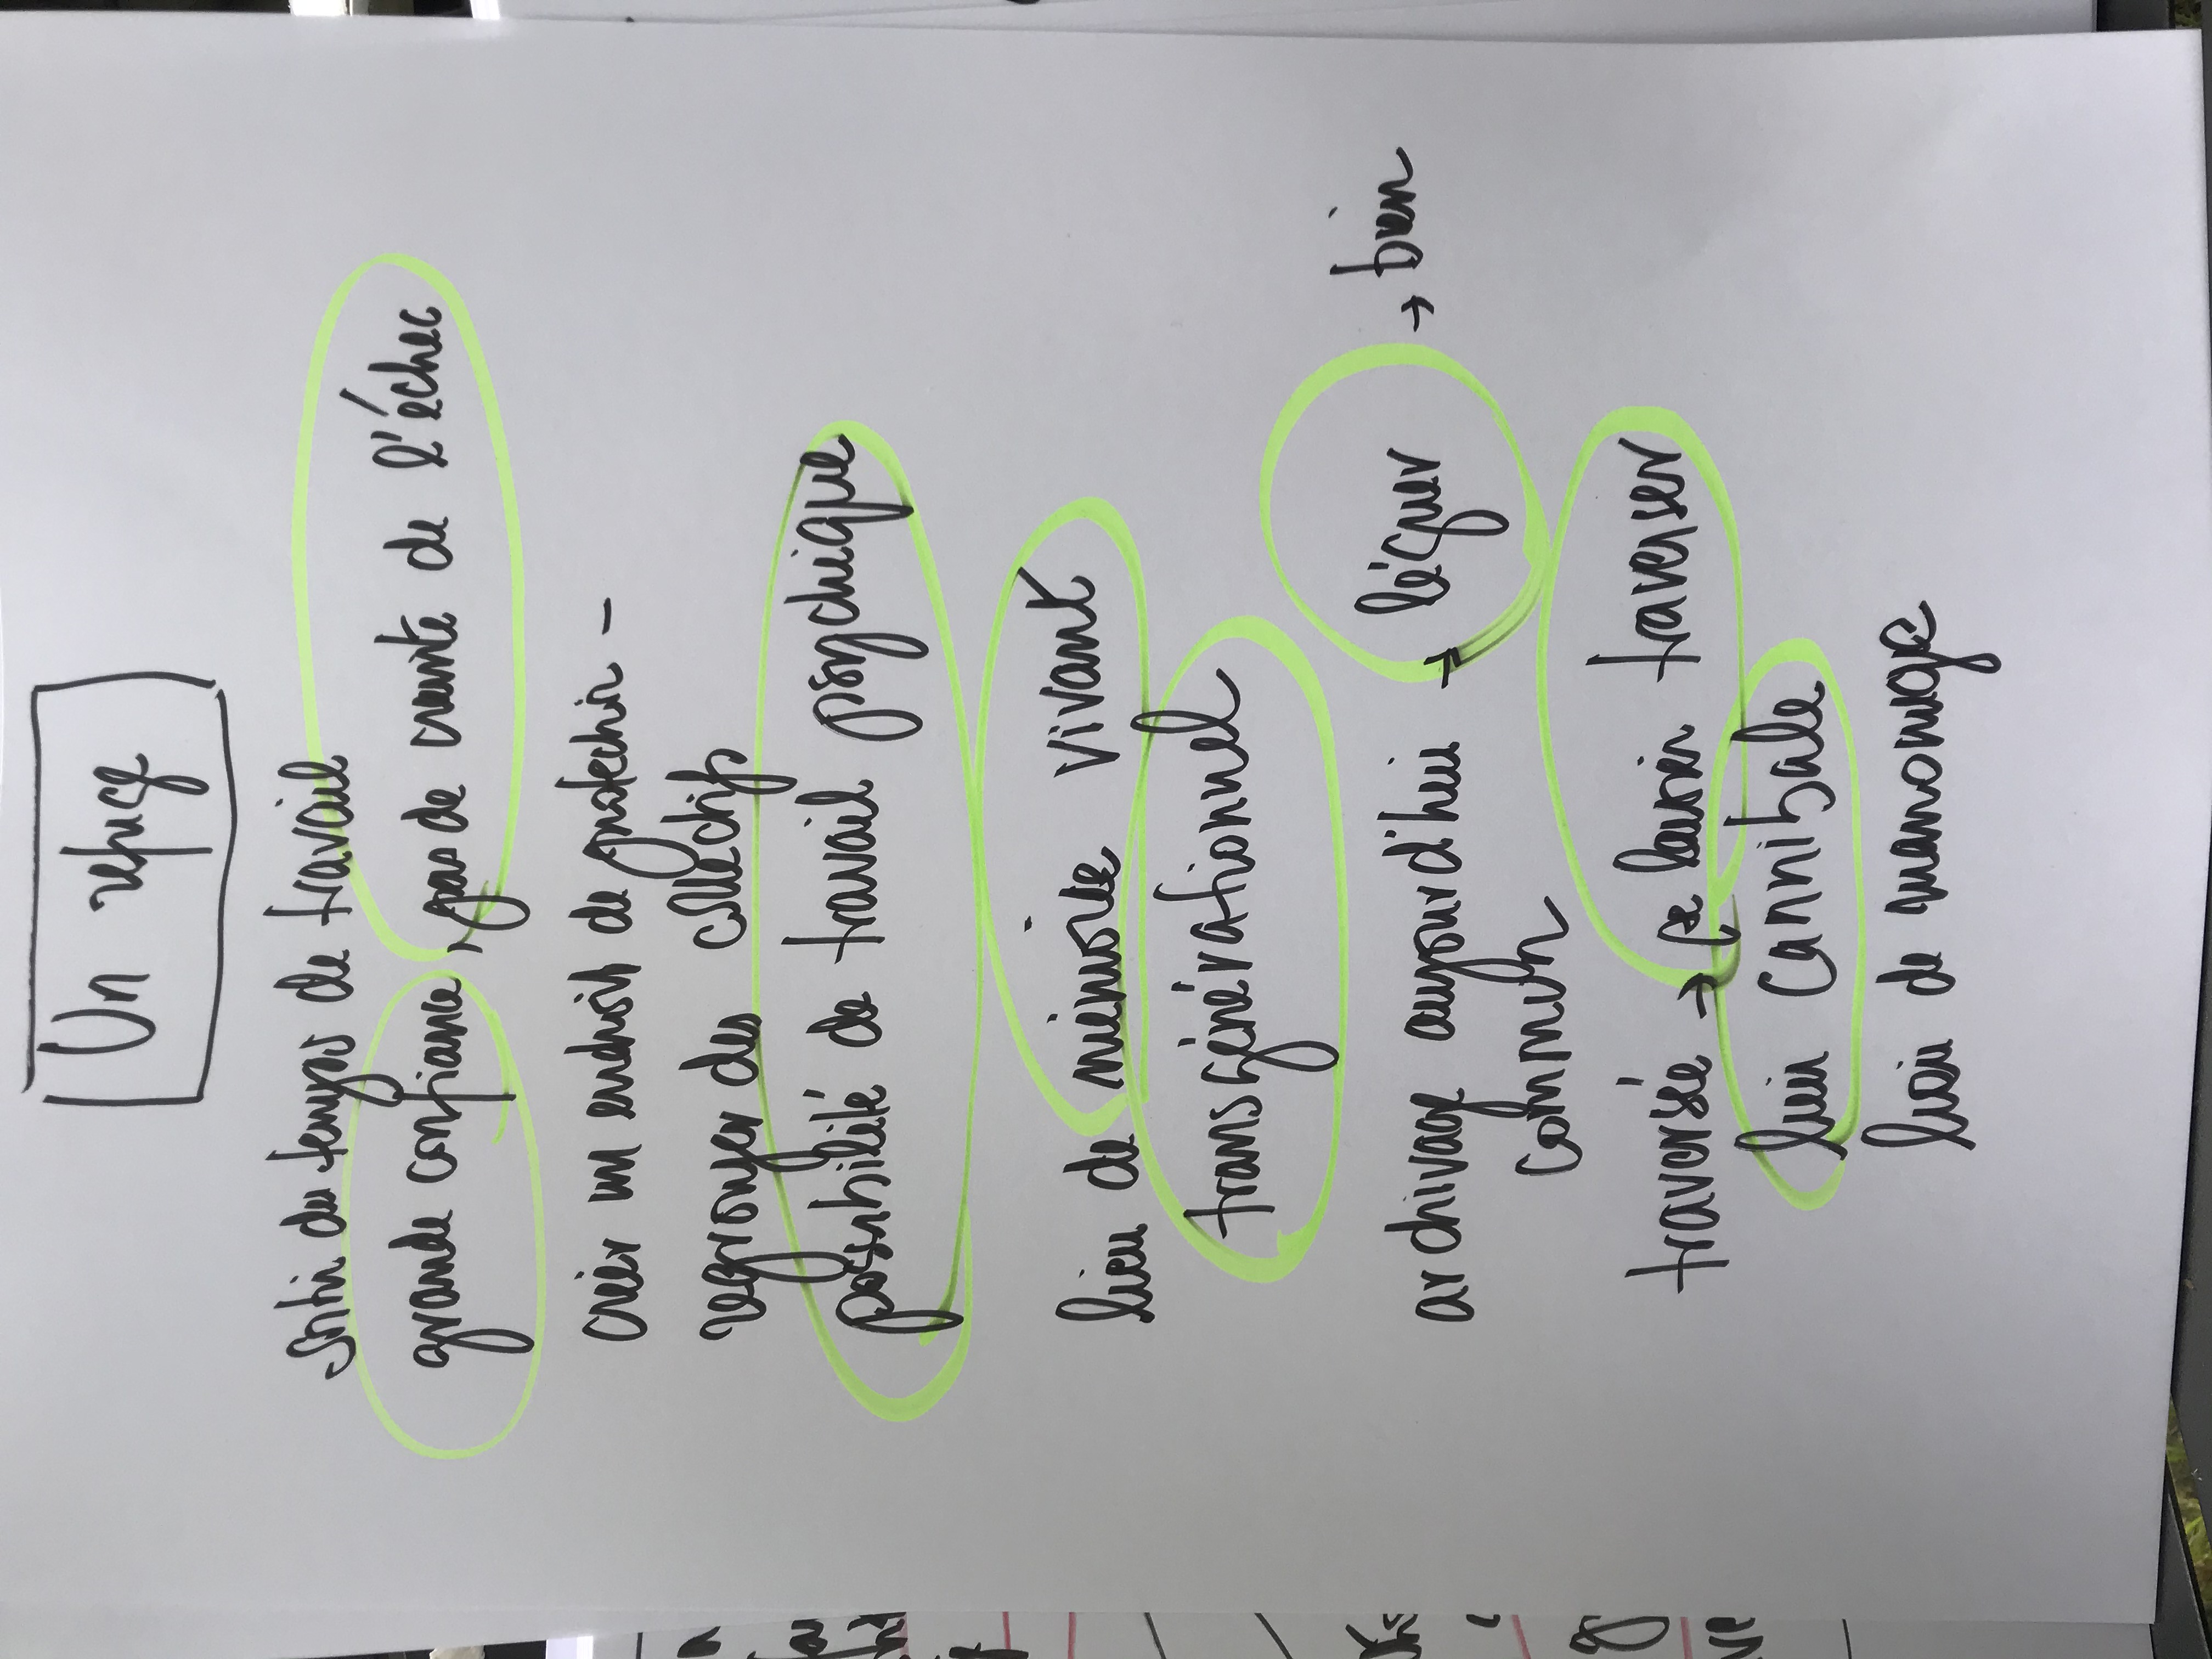 Un refuge
Sortir du temps de travail
grande confiance, pas de crainte de l'échec
créer un endroit de protection -
regrouper des collectifs
possibilité de travail psychique
lieu de mémoire vivant
transgénérationnel
archivage aujourd'hui → léguer → bien
commun
traversée → se laisser traverser
lieu cannibale
lieu de